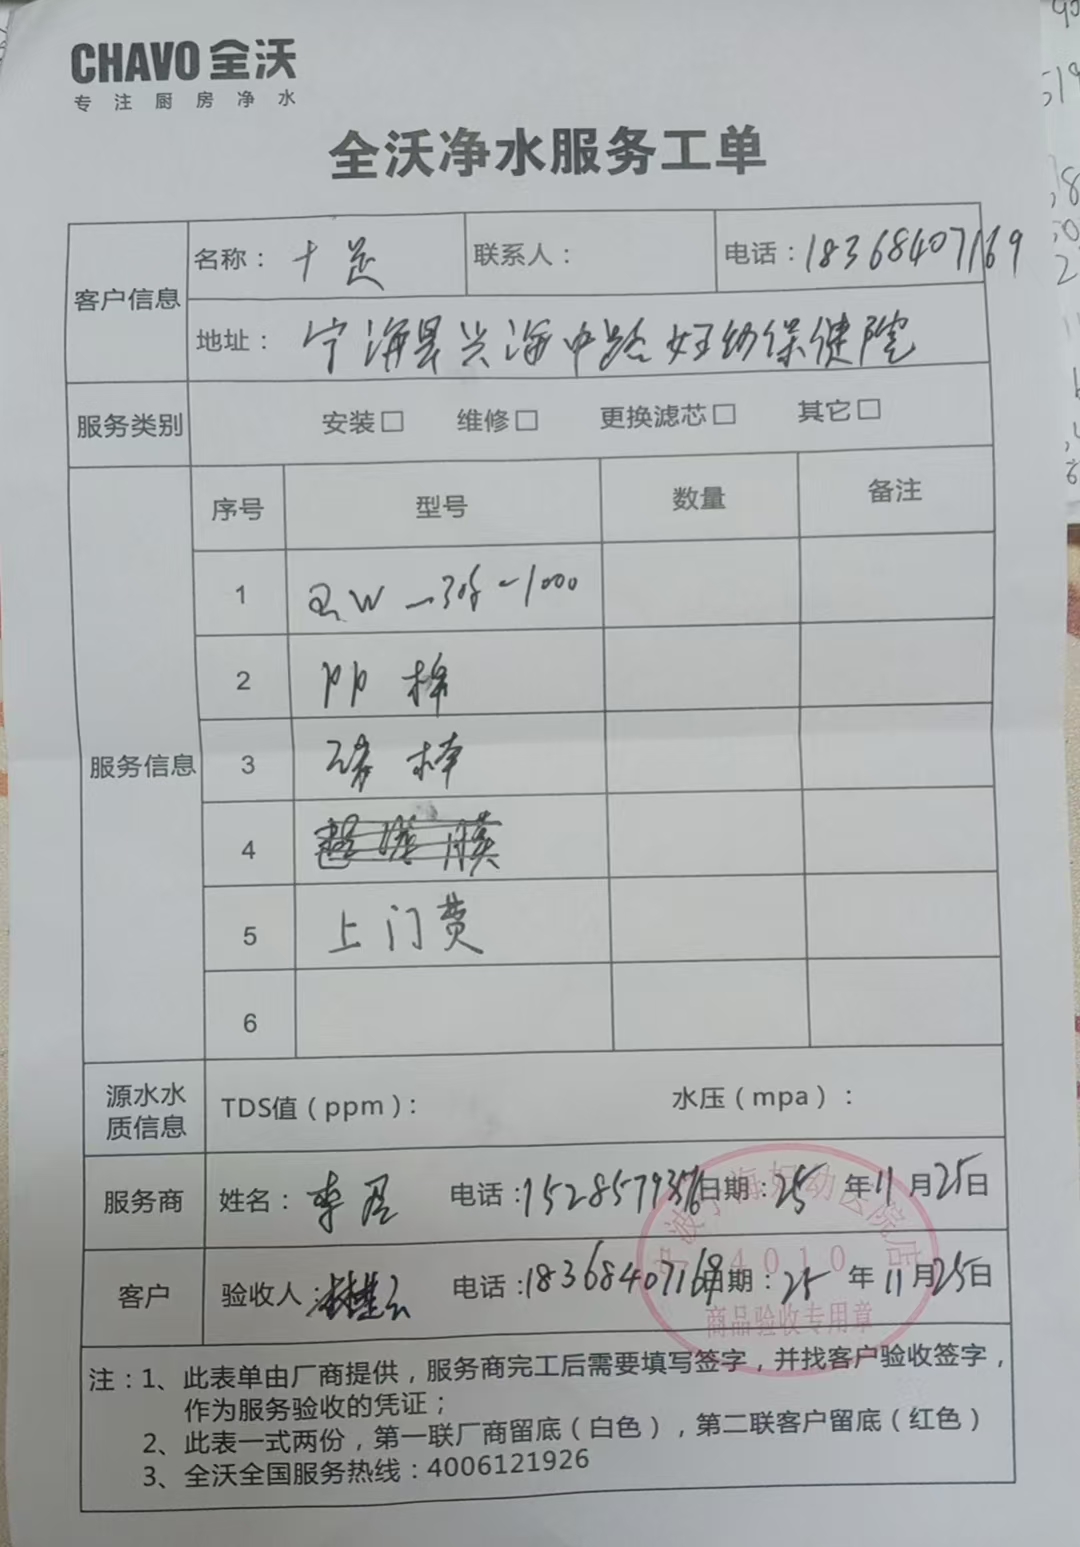 CHAVO 全沃
专注厨房净水
全沃净水服务工单
客户信息
名称：十足 联系人： 电话：18368407169
地址：宁海县兴海中路妇幼保健院
服务类别 安装□ 维修□ 更换滤芯□ 其它□
服务信息
序号 型号 数量 备注
1 QW-308-1000
2 PP棉
3 碳棒
4
5 上门费
6
源水水质信息 TDS值（ppm）： 水压（mpa）：
服务商 姓名：李 电话：15285791376 日期：25年11月25日
客户 验收人： 电话：18368407169 日期：25年11月25日
宁波宁海妇幼医院店
4010
商品验收专用章
注：1、此表单由厂商提供，服务商完工后需要填写签字，并找客户验收签字，
作为服务验收的凭证；
2、此表一式两份，第一联厂商留底（白色），第二联客户留底（红色）
3、全沃全国服务热线：4006121926